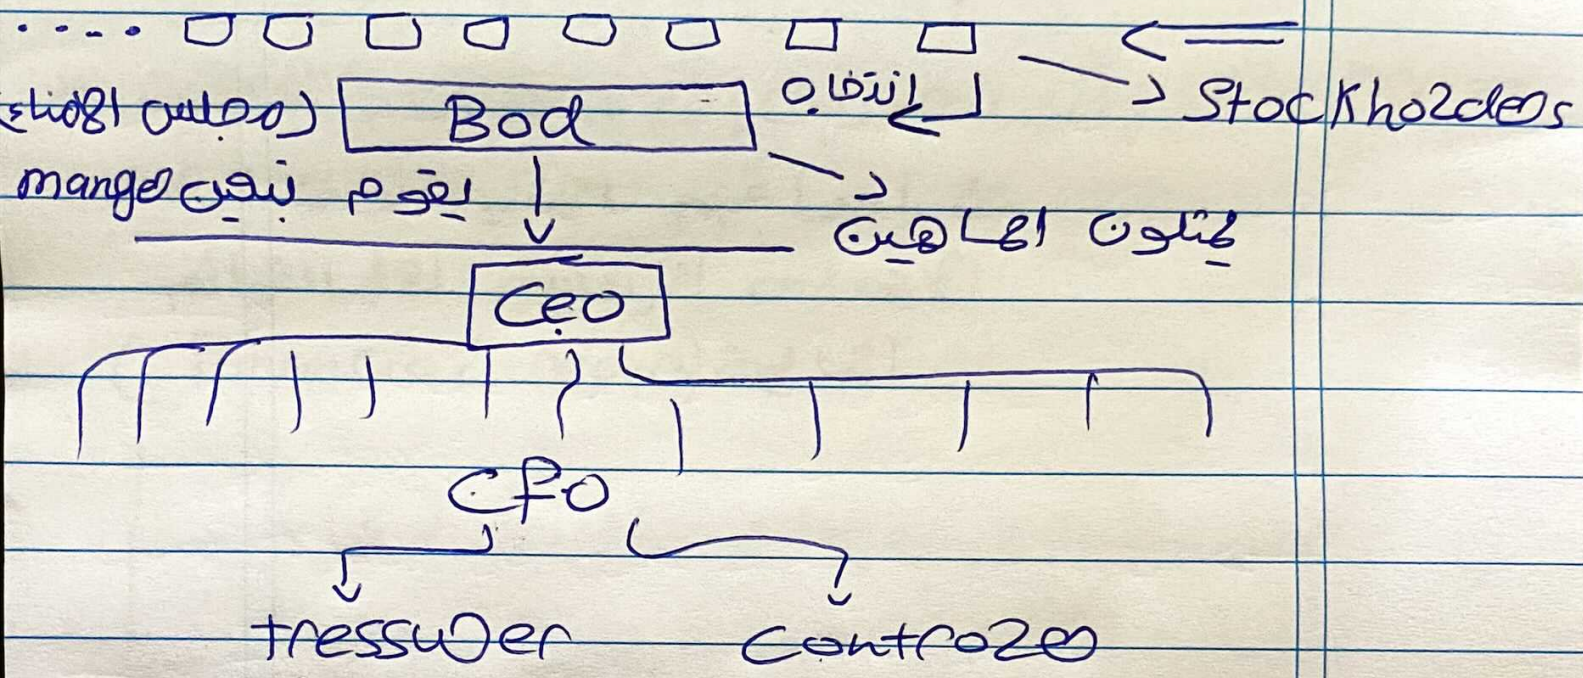 Stockholders
إنتخاب
(مجلس الأمناء) Bod
يقوم بتعين manger
يمثلون المساهمين
Ceo
CFO
tressurer controler